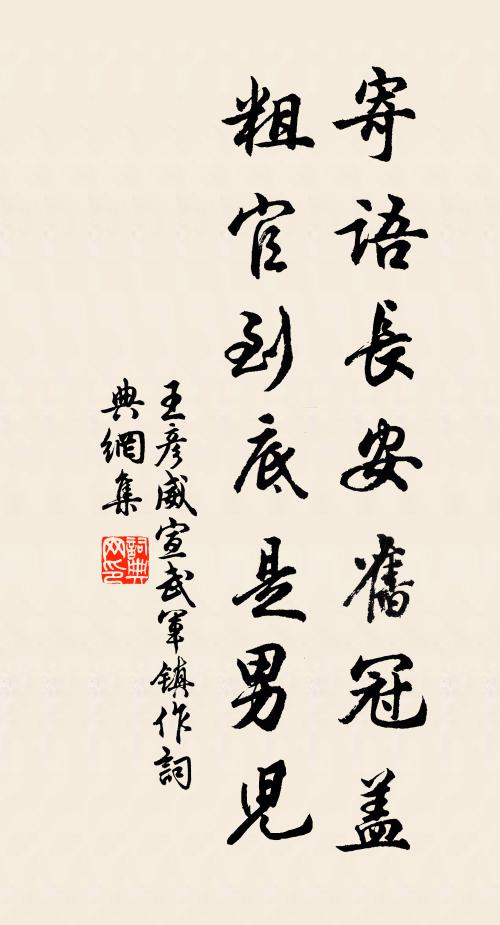 寄語長安舊冠盖
粗官到底是男兒
王彥威宣武軍鎮作詞
典網集
詞典
网印